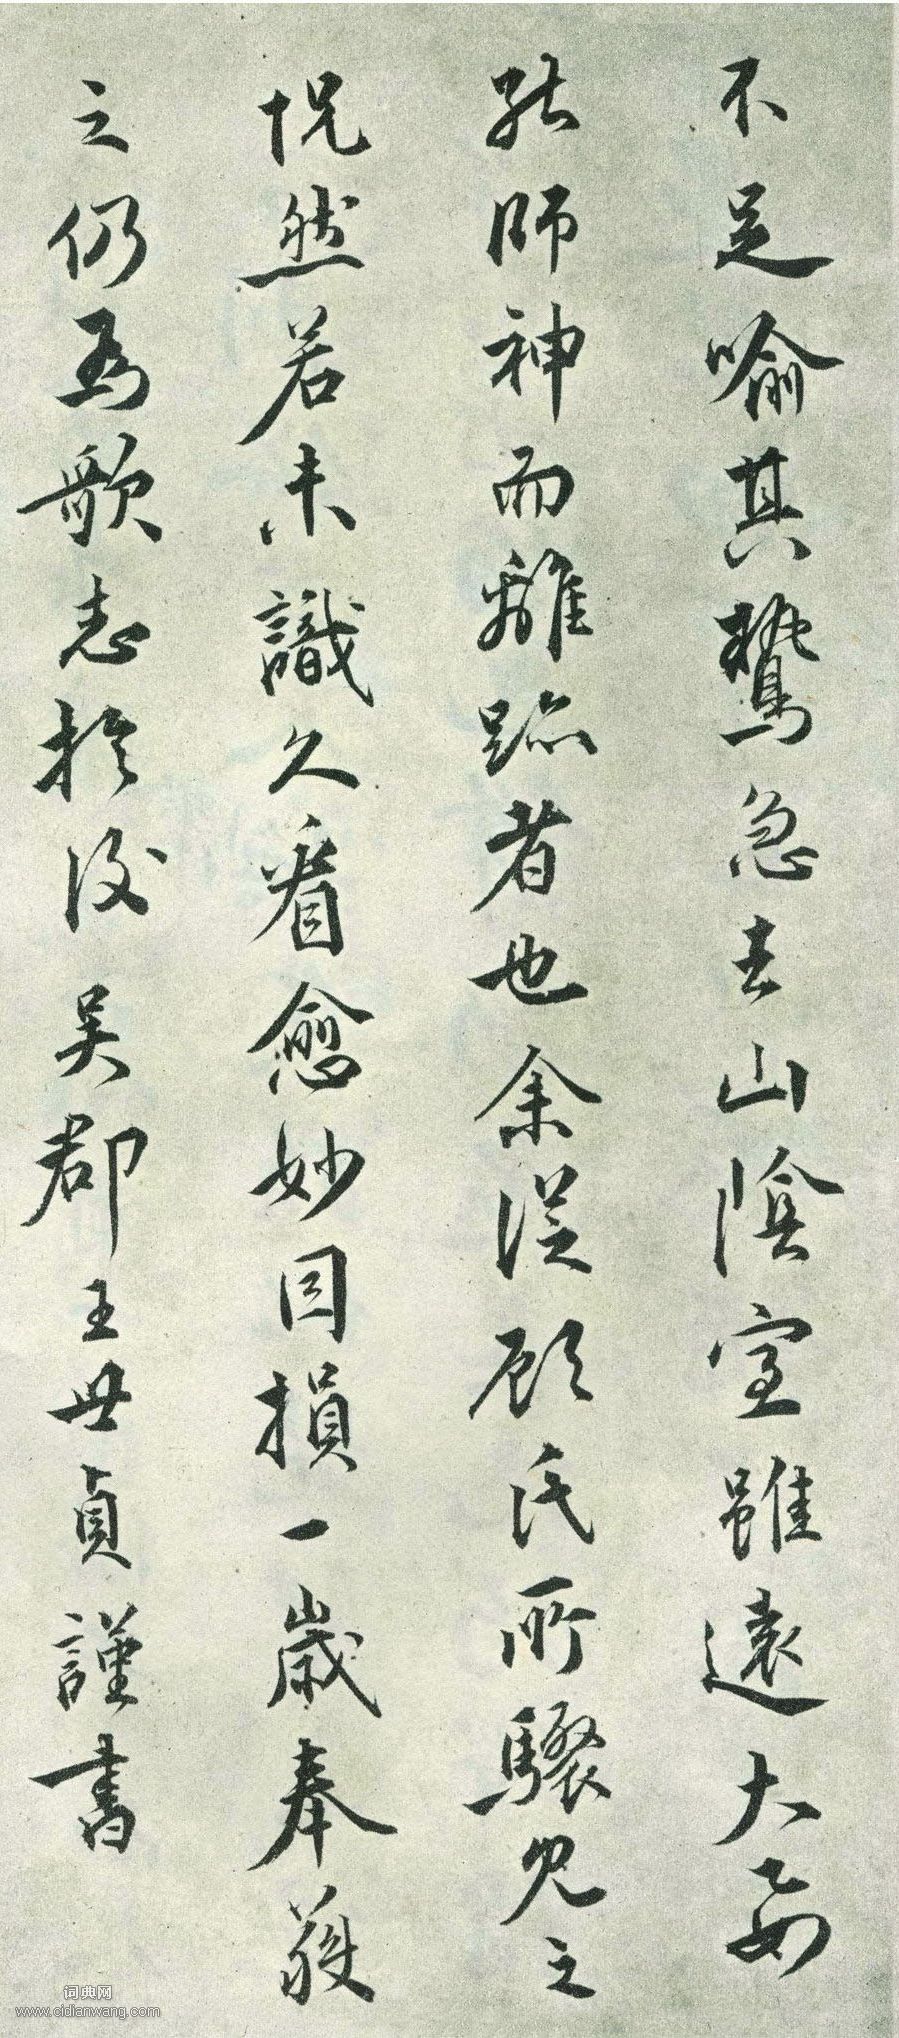 不足喻其鷙急去山陰室雖遠大要
能師神而離跡者也余從顧氏所驟見之
怳然若未識久看愈妙因損一歲奉獲
之仍為歌志於後吳郡王世貞謹書
词典网
www.cidianwang.com